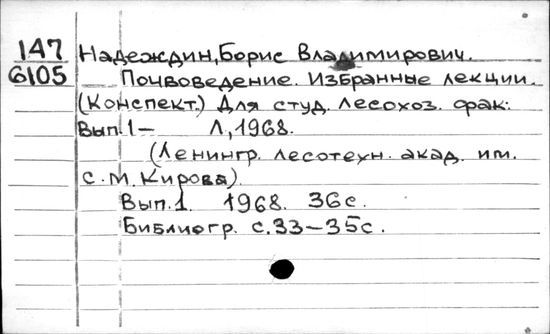 147
6105
Надеждин, Борис Владимирович.
Почвоведение. Избранные лекции.
(Конспект.) Для студ. лесохоз. фак.
Вып. 1- Л, 1968.
(Ленингр. лесотехн. акад. им.
С. М. Кирова).
Вып. 1. 1968. 36с.
Библиогр. с. 33-35с.